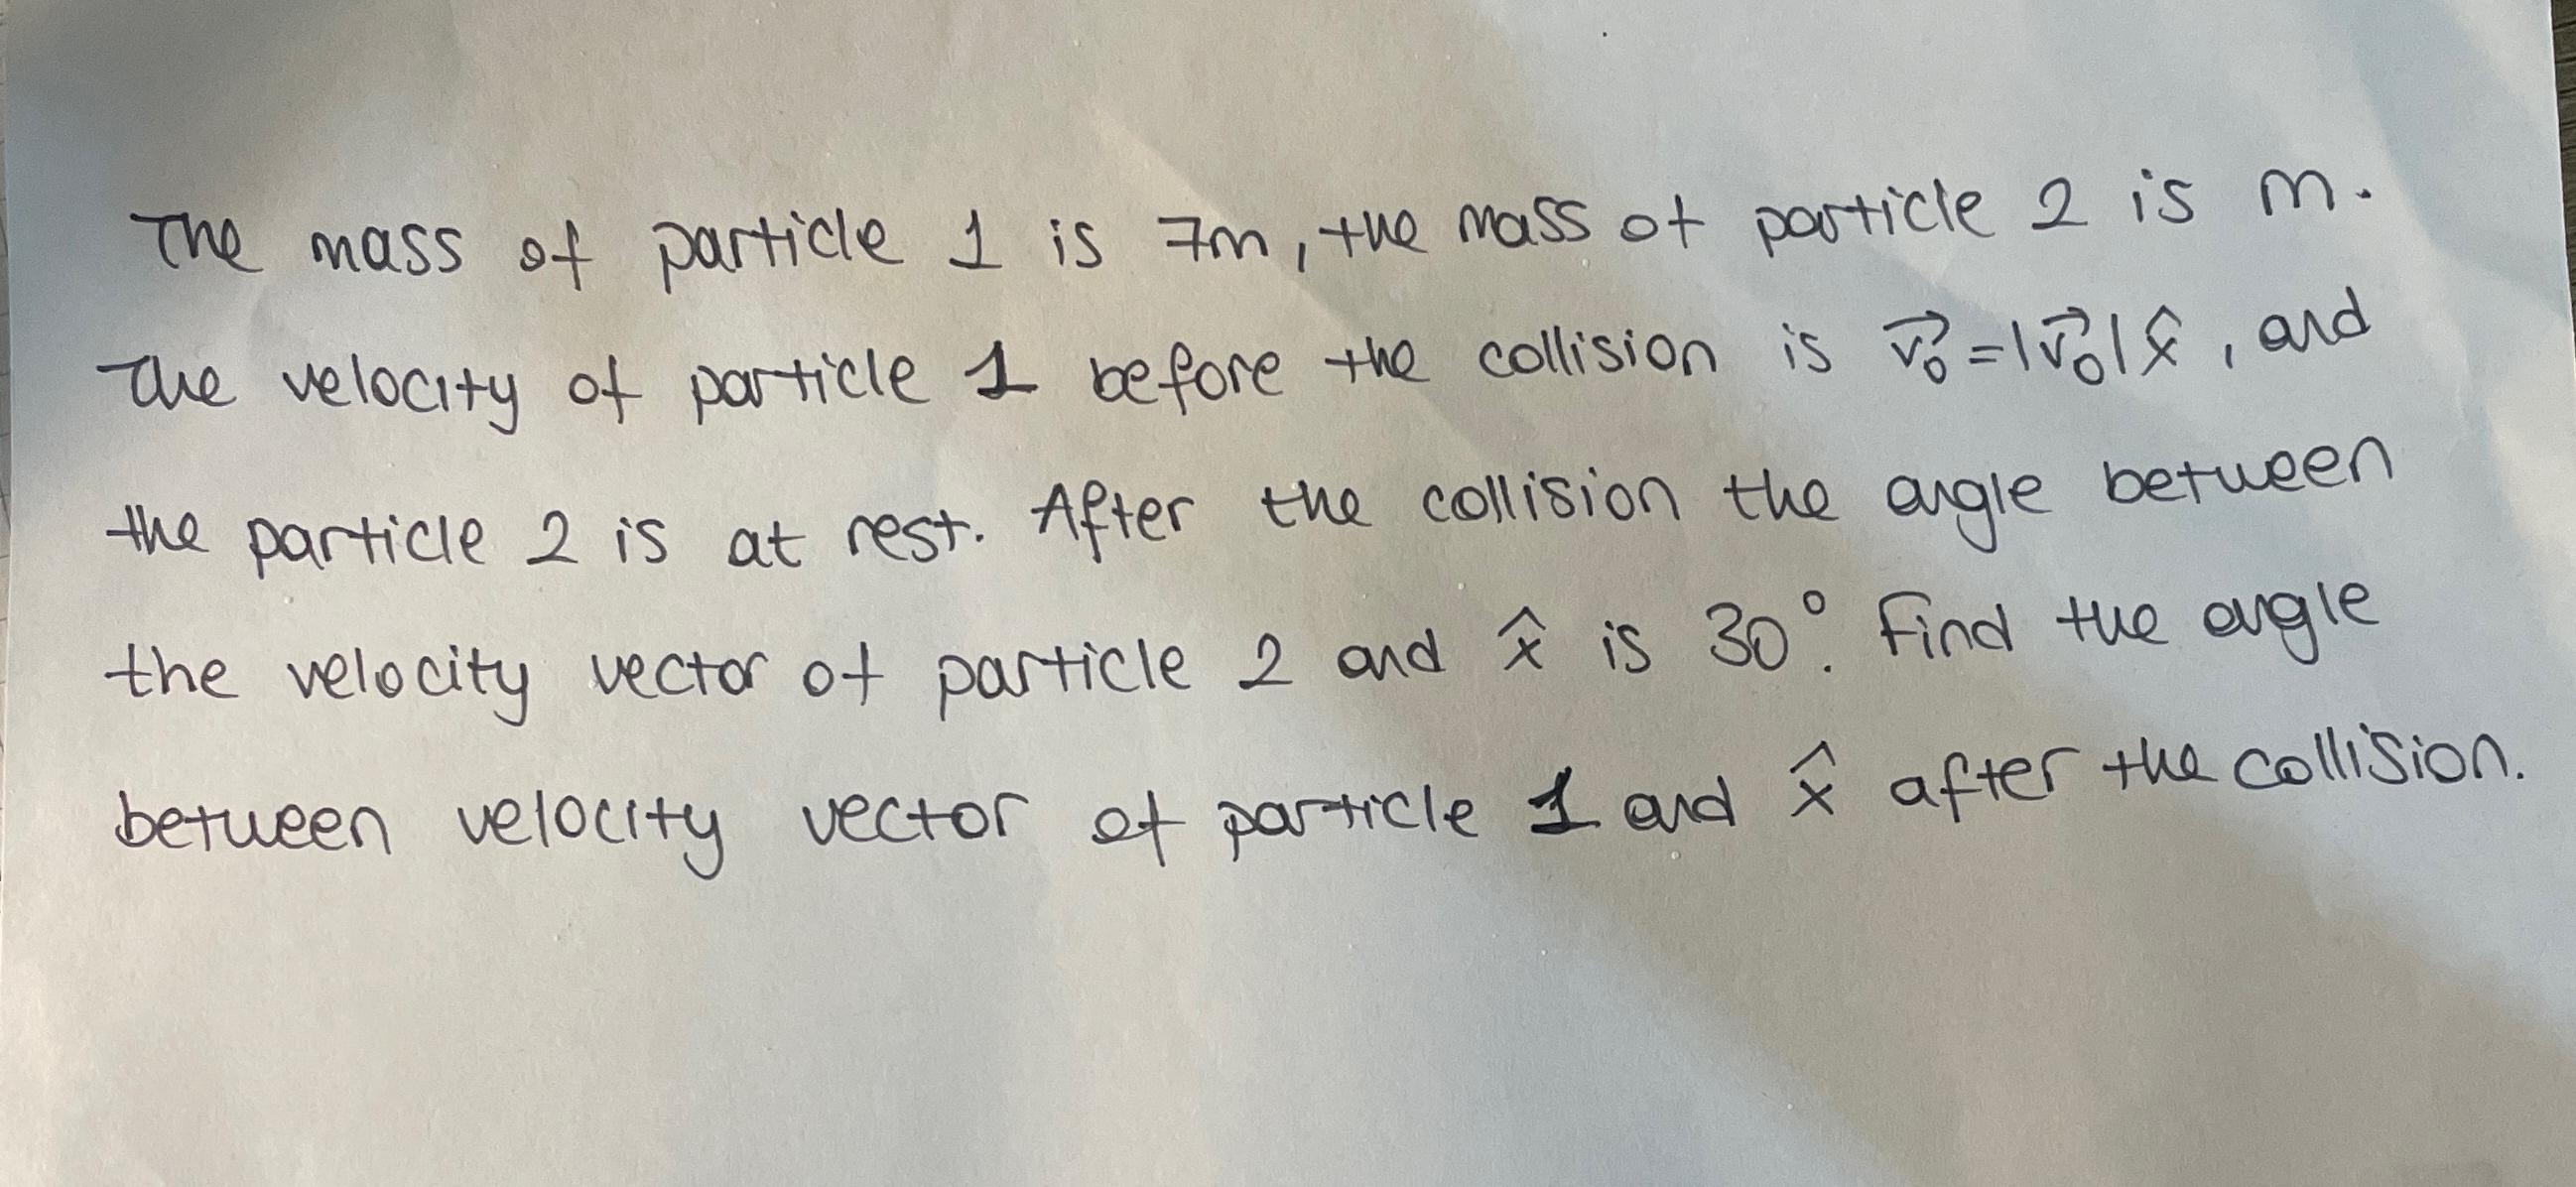 The mass of particle 1 is 7m, the mass of particle 2 is m.
The velocity of particle 1 before the collision is v⃗₀=|v⃗₀|x̂, and
the particle 2 is at rest. After the collision the angle between
the velocity vector of particle 2 and x̂ is 30°. Find the angle
between velocity vector of particle 1 and x̂ after the collision.